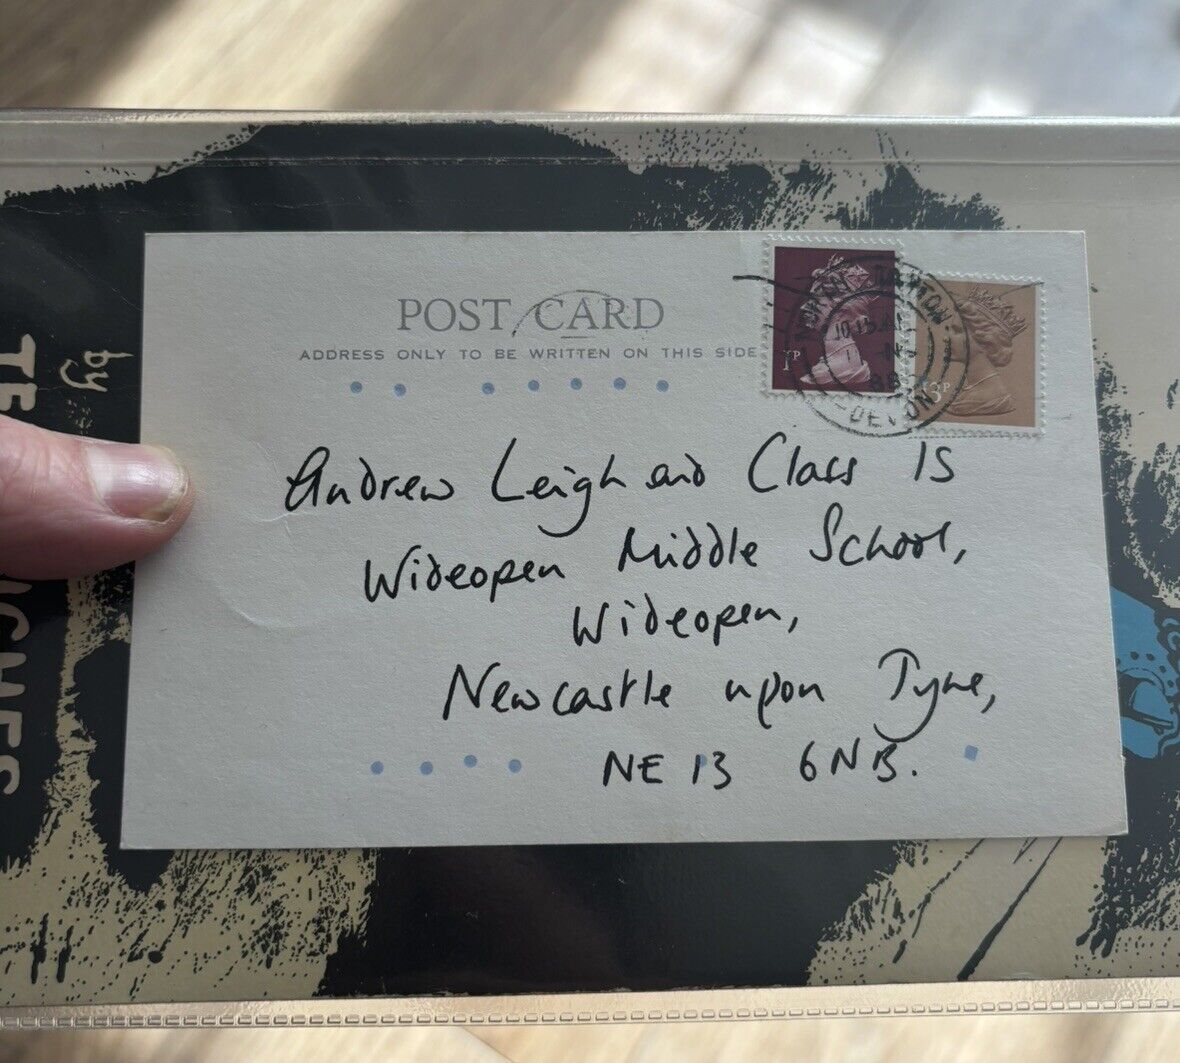 POST CARD
ADDRESS ONLY TO BE WRITTEN ON THIS SIDE
1P
13P
NORTH TAWTON
DEVON
Andrew Leigh and Class 1S
Wideopen Middle School,
Wideopen,
Newcastle upon Tyne,
NE 13 6NB.
by